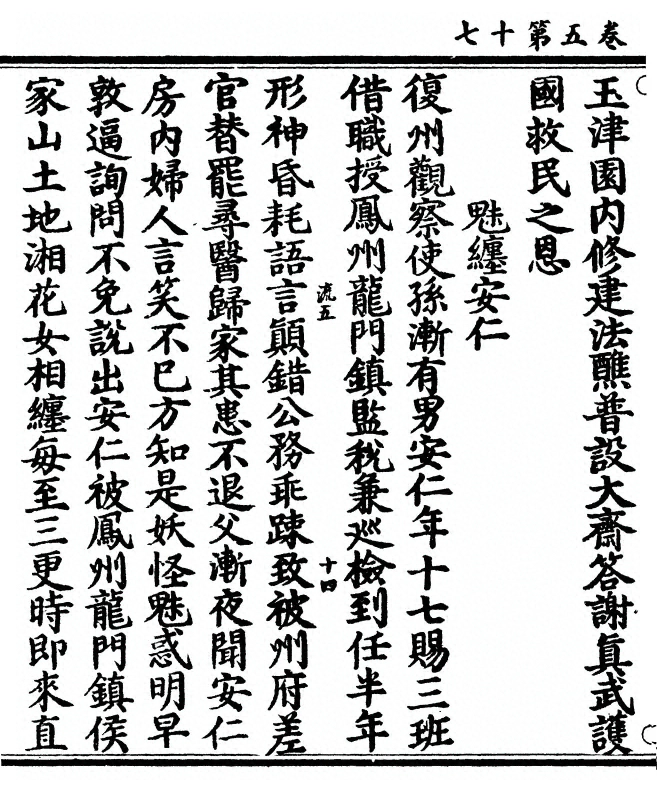 卷五第十七
玉津園内修建法醮普設大齋答謝眞武護
國救民之恩
魅纏安仁
復州觀察使孫漸有男安仁年十七賜三班
借職授鳳州龍門鎮監稅兼巡檢到任半年
流五
十四
形神昏耗語言顚錯公務乖踈致被州府差
官替罷尋醫歸家其患不退父漸夜聞安仁
房内婦人言笑不已方知是妖怪魅惑明早
敦逼詢問不免說出安仁被鳳州龍門鎮侯
家山土地湘花女相纏每至三更時即來直